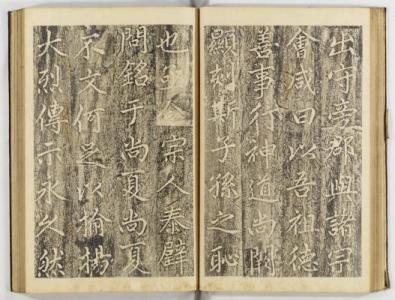 出守旁郡諸宗
會咸曰以吾祖德
善事行神道尚闕
顯刻斯子孫之恥
也宗人泰
問銘于尚夏尚夏
不文何足以揄揚
大烈傳示永久然